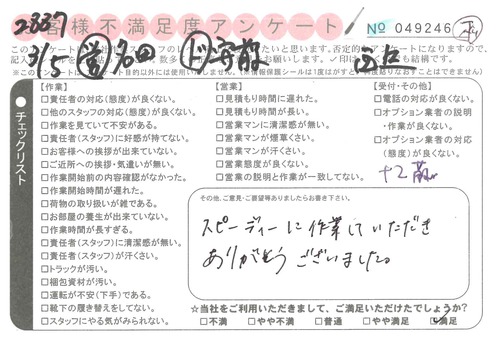 2337
お客様不満足度アンケート
No 049246
3/5
【作業】
□責任者の対応(態度)が良くない。
□他のスタッフの対応(態度)が良くない。
□作業を見ていて不安がある。
□責任者(スタッフ)に好感が持てない。
□お客様への挨拶が出来ていない。
□ご近所への挨拶・気遣いが無い。
□作業開始前の内容確認がなかった。
□作業開始時間が遅れた。
□荷物の取り扱いが雑である。
□お部屋の養生が出来ていない。
□作業時間が長すぎる。
□責任者(スタッフ)に清潔感が無い。
□責任者(スタッフ)が汗くさい。
□トラックが汚い。
□梱包資材が汚い。
□運転が不安(下手)である。
□靴下の履き替えをしてない。
□スタッフにやる気がみられない。
【営業】
□見積もり時間に遅れた。
□見積もり時間が長い。
□営業マンに清潔感が無い。
□営業マンが煙草くさい。
□営業マンが汗くさい。
□営業態度が良くない。
□営業の説明と作業が一致してない。
【受付・その他】
□電話の対応が良くない。
□オプション業者の説明
・作業が良くない。
□オプション業者の対応
(態度)が良くない。
チェックリスト
その他、ご意見・ご要望等ありましたらお書き下さい。
スピーディーに作業していただき
ありがとうございました。
☆当社をご利用いただきまして、ご満足いただけたでしょうか?
□不満 □やや不満 □普通 □やや満足 □満足